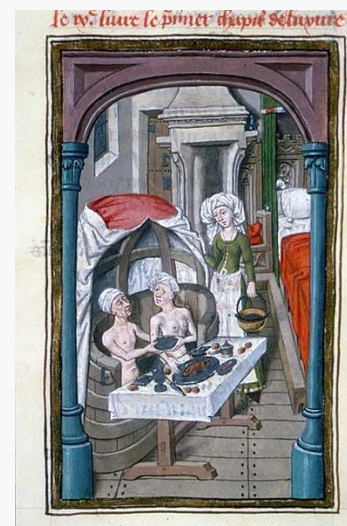 le ixᵉ liure le p̄mier chapit̄ꝰ de luxure